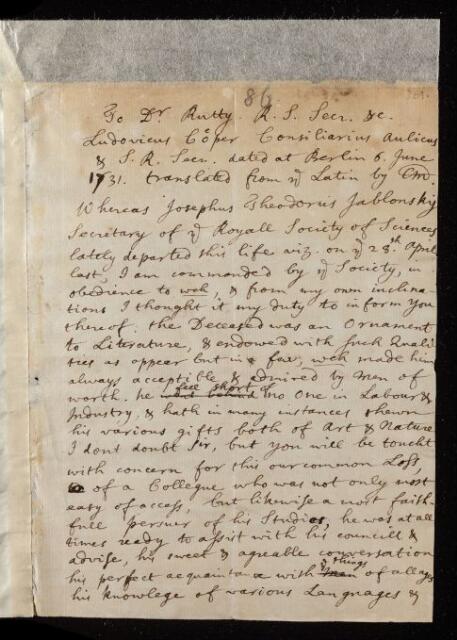 86
To Dr. Rutty. R. S. Secr. &c.
Ludovicus Cöper Consiliarius Aulicus
& S. R. Secr. dated at Berlin 6. June
1731. translated from ye Latin by
Whereas Josephus Theodorus Jablonsky
Secretary of ye Royall Society of Sciences
lately departed this life viz. on ye 28th April
last, I am commanded by ye Society, in
obedience to wch, & from my own inclina
tions I thought it my duty to inform you
thereof: the Deceased was an Ornament
to Literature, & endowed with such Quali
ties as appear but in few, wch made him
always acceptible & admired by Men of
worth. he fell short of no One in Labour &
Industry, & hath in many instances shewn
his various gifts both of Art & Nature
I dont doubt Sir, but you will be toucht
with concern for this our common Loss,
of a Collegue who was not only most
easy of access, but likewise a most faith
full persuer of his Studies, he was at all
times ready to assist with his councill &
advise, his sweet & agreable conversation
his perfect acquaintance with men & things of all ages
his knowlege of various Languages &